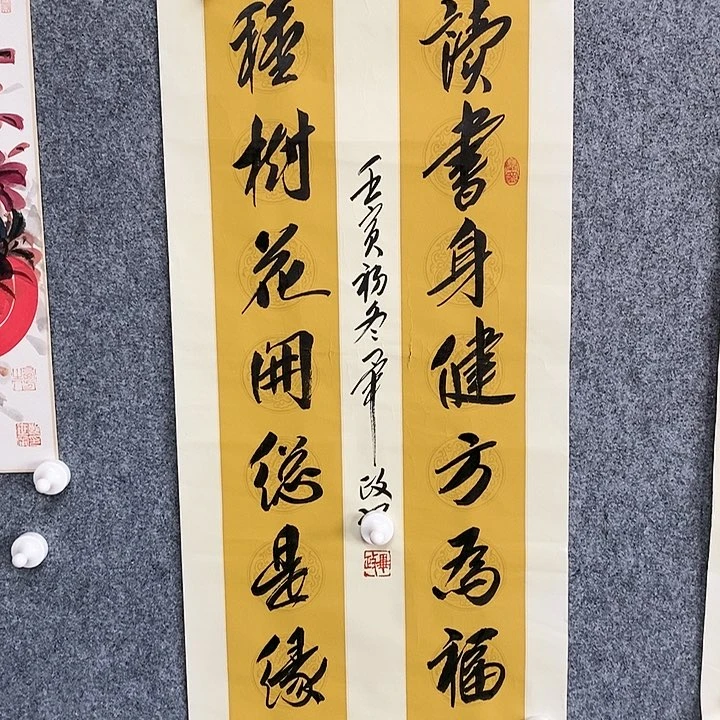 讀書身健方為福
種樹花開總是緣
壬寅初冬畢政